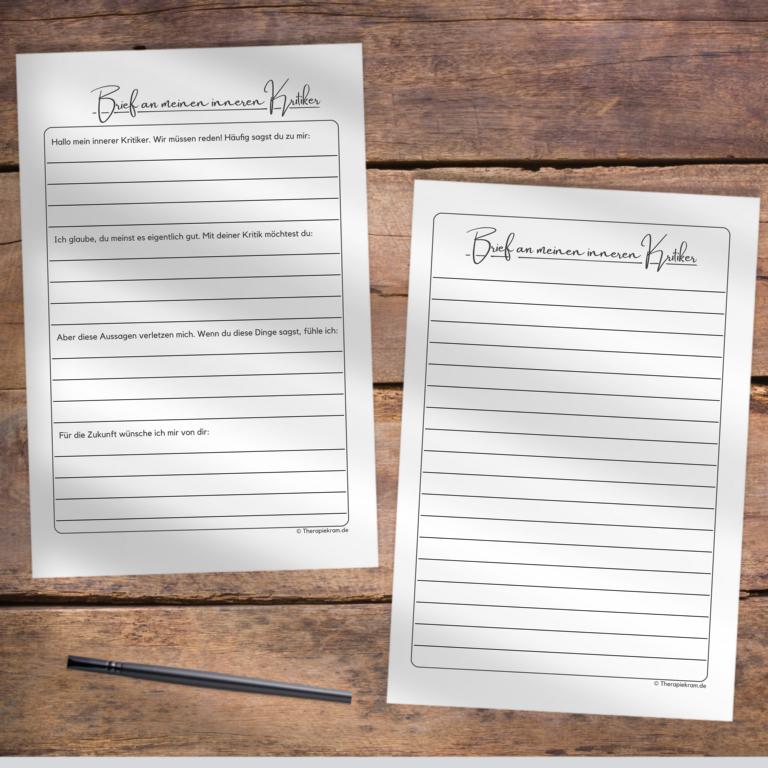 Brief an meinen inneren Kritiker
Hallo mein innerer Kritiker. Wir müssen reden! Häufig sagst du zu mir:
Ich glaube, du meinst es eigentlich gut. Mit deiner Kritik möchtest du:
Aber diese Aussagen verletzen mich. Wenn du diese Dinge sagst, fühle ich:
Für die Zukunft wünsche ich mir von dir:
© Therapiekram.de
Brief an meinen inneren Kritiker
© Therapiekram.de